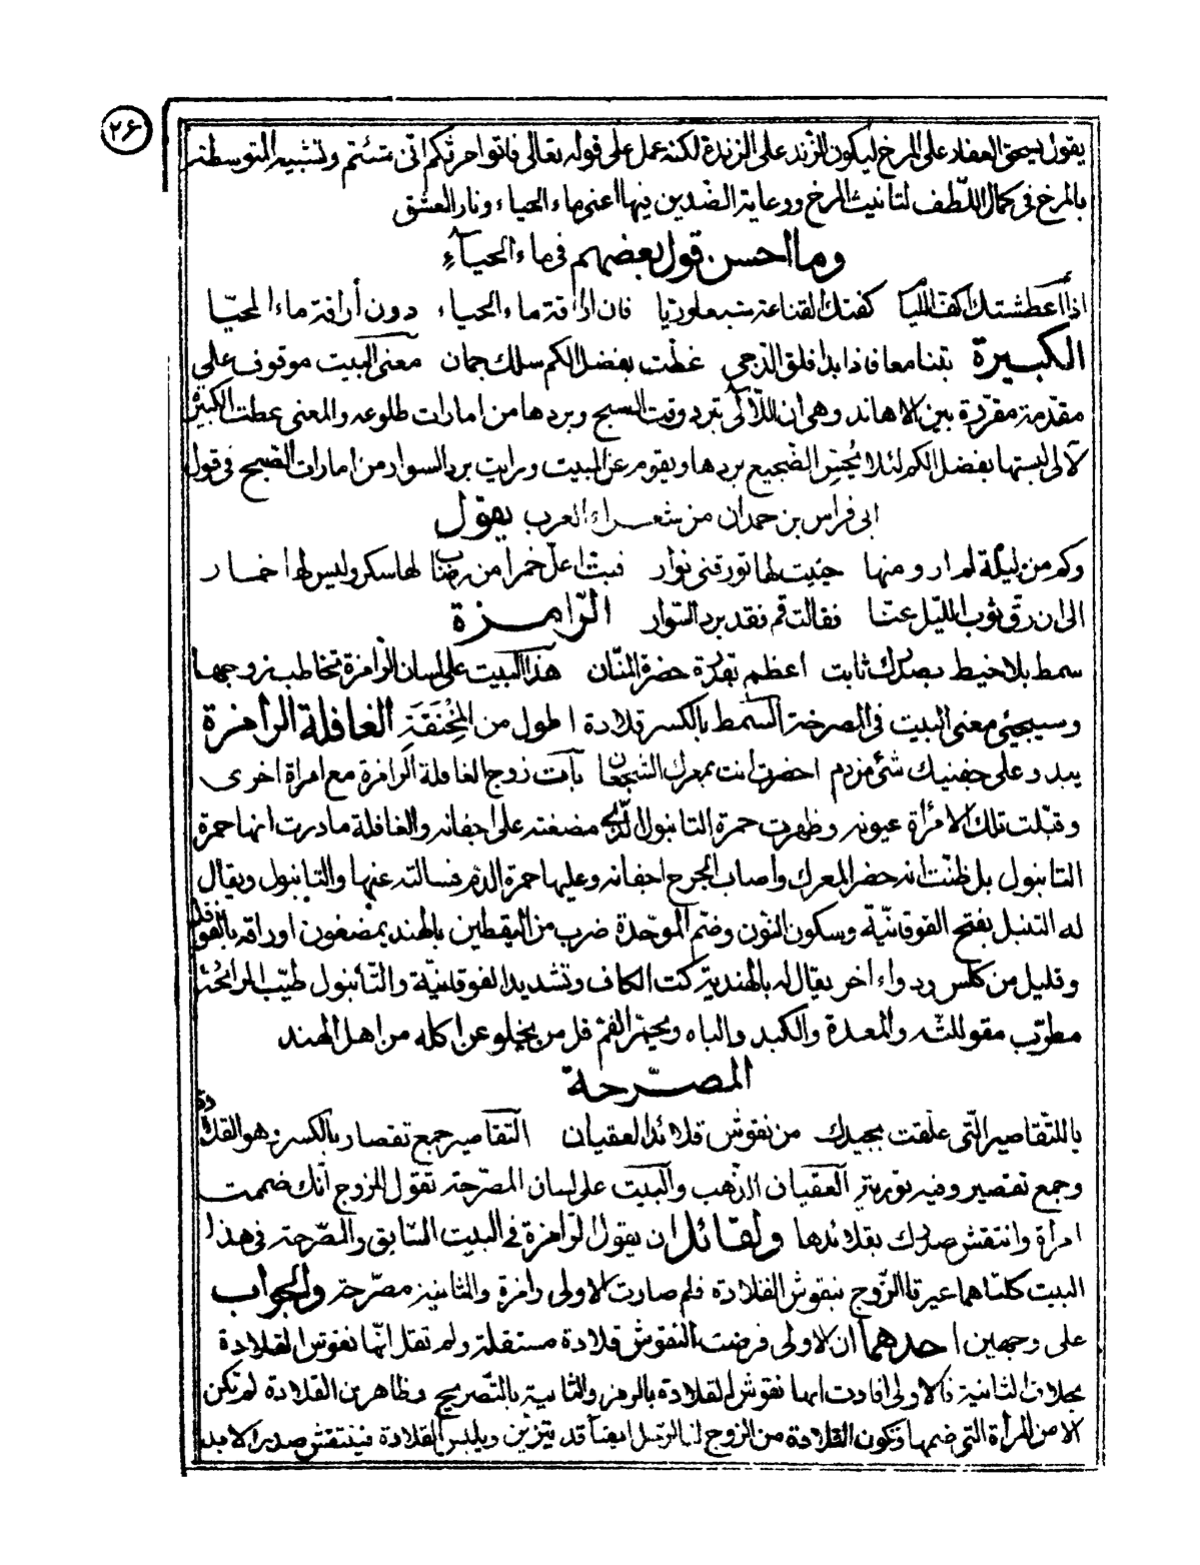 ٢٦
يقول يسحق العفار على المرخ ليكون الزند على الزندة لكنه عمل على قوله تعالى فاتوا حرثكم انّى شئتم وتشبيه المتوسطة
بالمرخ فى كمال اللّطف لتانيث المرخ ورعاية الضّدين فيها اعنى ماء الحياء ونار العشق
وما احسن قول بعضهم فى ماء الحياء
اذا اعطشتك اكف اللئام كفتك القناعة شبعا وريا فان اراقة ماء الحياء دون أراقة ماء المحيّا
الكبيرة بتنا معا فاذا بدا فلق الدّجى غطّت بفضل الكم سلك جمان معنى البيت موقوف على
مقدّمة مقرّرة بين الاهاند وهى ان اللّآلى تبرد وقت السبح وبردها من امارات طلوعه والمعنى غطت الكبيرة
لآلى لبستها بفضل الكم لئلا يحسّ الضجيع بردها ويقوم عن المبيت ورايت برد السوار من امارات الصّبح فى قول
ابى فراس بن حمدان من شعراء العرب يقول
وكم من ليلة لم ارو منها حنيت لها تورقنى نوار فبتّ اعلّ خمرا من رضاب لها سكر وليس لها خمار
الى ان رقّ ثوب الليّل عنّا فقالت قم فقد برد السّوار الرّامزة
سمط بلا خيط بصدرك ثابت اعظم بقدرة حضرة المنّان هذا البيت على لسان الرامزة تخاطب زوجها
وسيجيئ معنى البيت فى المصرحة السّمط بالكسر قلادة اطول من المخنقة الغافلة الرامزة
يبدو على جفنيك شئ من دم احضرت انت بمعرك الشجعان بات زوج الغافلة الرامزة مع امراة اخرى
وقبّلت تلك الامرأة عيونه وظهرت حمرة التانبول الّذى مضغته على اجفانه والغافلة ما درت انها حمرة
التانبول بل ظنّت انه حضر المعرك واصاب الجرح اجفانه وعليها حمرة الدّم فسالته عنها والتانبول ويقال
له التنبل بفتح الفوقانيّة وسكون النّون وضمّ الموحّدة ضرب من اليقطين بالهند يمضغون اوراقه بالفوفل
وقليل من كلس ودواء اخر يقال له بالهندية كت الكاف وتشديد الفوقانيّة والتّانبول طيّب الرائحة
مطرّب مقو للثه والمعدة والكبد والباه ويحمّر الفم قل من يخلو عن اكله من اهل الهند
المصرّحة
يا للتّقاصير الّتى علّقت بجيدك من نقوش قلائد العقيان التّقاصير جمع تقصار بالكسر هو القلادة
وجمع تقصير وفيه تورية العقيان الذّهب والبيت على لسان المصرّحة تقول للزوج انّك ضممت
امرأة وانتقش صدرك بقلائدها ولقائل ان يقول الرّامزة فى البيت السّابق والمصّرحة فى هذا
البيت كلتاهما عيرتا الزّوج بنقوش القلادة فلم صارت الاولى رامزة والثانية مصرّحة والجواب
على وجهين احدهما ان الاولى فرضت النّقوش قلادة مستقلة ولم تقل انّها نقوش القلادة
بخلاف الثانية فالاولى افادت انها نقوش القلادة بالرمز والثانية بالتّصريح وظاهر ان القلادة لم تكن
الا من المرأة التى ضمها وتكون القلادة من الزوج لنا الرّجل ايضا قد يتزيّن ويلبس القلادة فينتقش صدره الابد